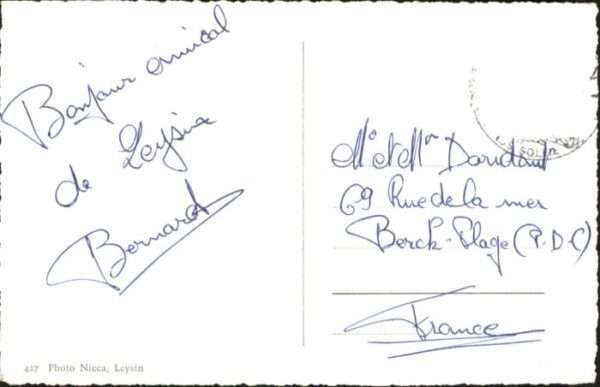 Bonjour amical
de Leysin
Bernard
427 Photo Nicca, Leysin
SOLEIL
Mr et Mme
69 Rue de la mer
Berck-Plage (P.D.C)
France